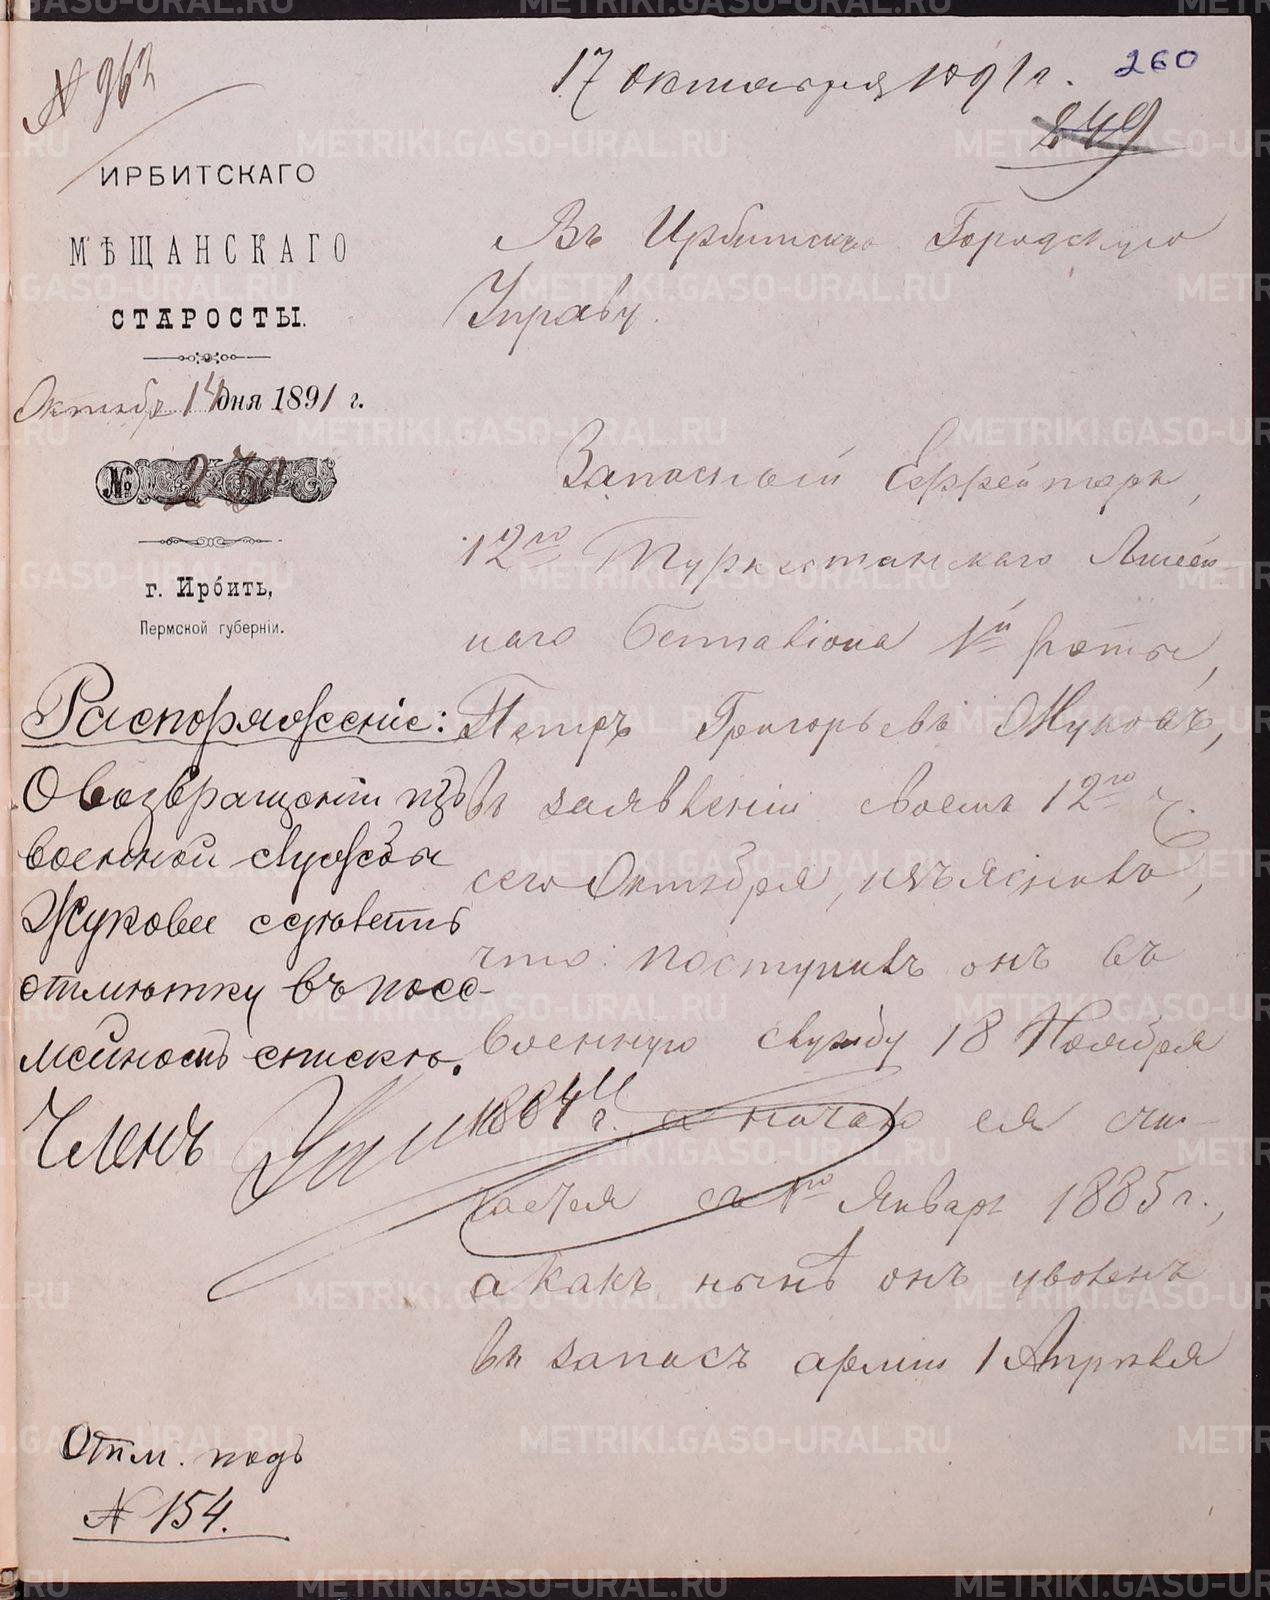 № 962
17 октября 1891 г.
260
249
ИРБИТСКАГО
МѢЩАНСКАГО
СТАРОСТЫ.
Октябр 14 дня 1891 г.
№
г. Ирбить,
Пермской губерніи.
Въ Ирбитскую Городскую
Управу.
Запасный Ефрейторъ,
12го Туркестанскаго Линей
наго Баталіона 1й роты,
Петръ Григорьевъ Жуковъ,
въ заявленіи своемъ 12го ч.
сего Октября, изъяснивъ,
что: поступивъ онъ въ
военную службу 18 Ноября
1884 г. а начало ея счи-
тается съ 1го Январь 1885 г.,
а какъ нынѣ онъ уволенъ
въ запасъ арміи 1 Апрѣля
Распоряженіе:
О возвращеніи изъ
военной службы
Жукова сдѣлать
отмѣтку въ посе-
мейномъ спискѣ.
Членъ
Отм. подъ
№ 154.
METRIKI.GASO-URAL.RU